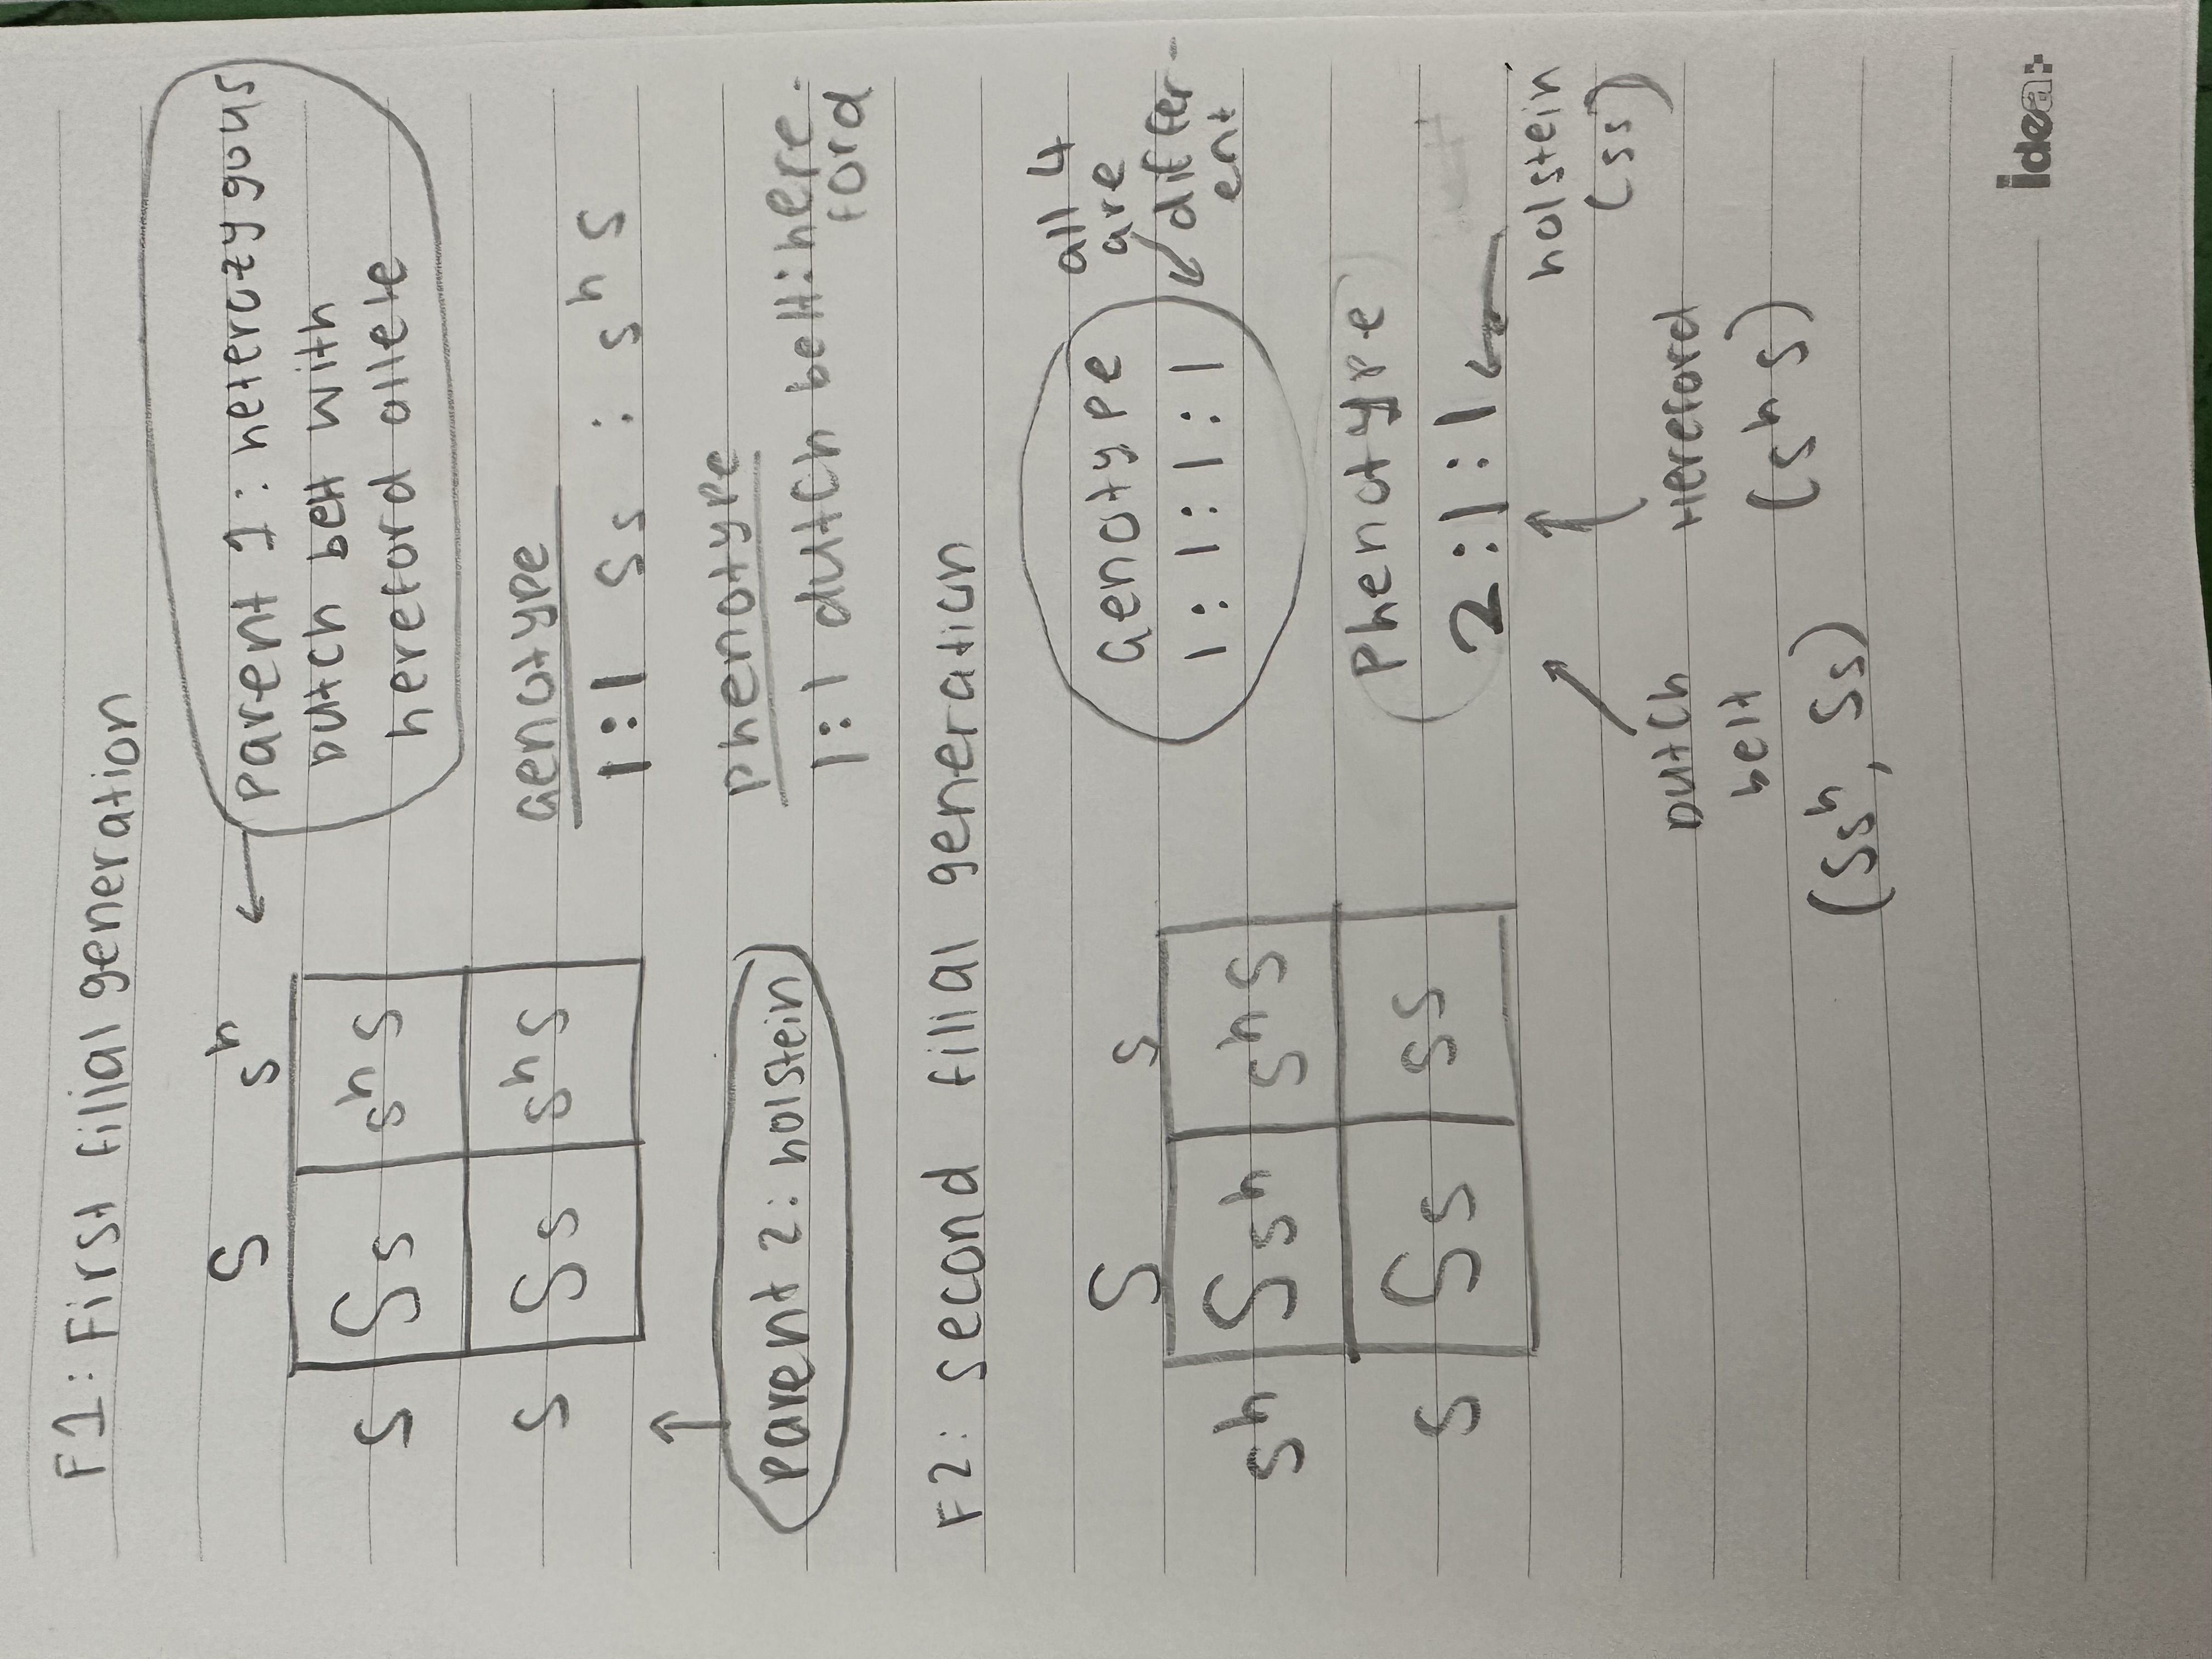 F1: First filial generation
S sʰ
← Parent 1: heterozygous
Dutch belt with
hereford allele
s Ss sʰs
s Ss sʰs
Genotype
1:1 Ss : sʰs
Phenotype
1:1 dutch belt:here-
ford
↑
Parent 2: holstein
F2: second filial generation
S s
sʰ Ssʰ sʰs
s Ss ss
Genotype
1:1:1:1
all 4
are
differ-
ent
Phenotype
2:1:1
Dutch
belt
(Ssʰ, Ss)
Hereford
(sʰs)
holstein
(ss)
idea:-